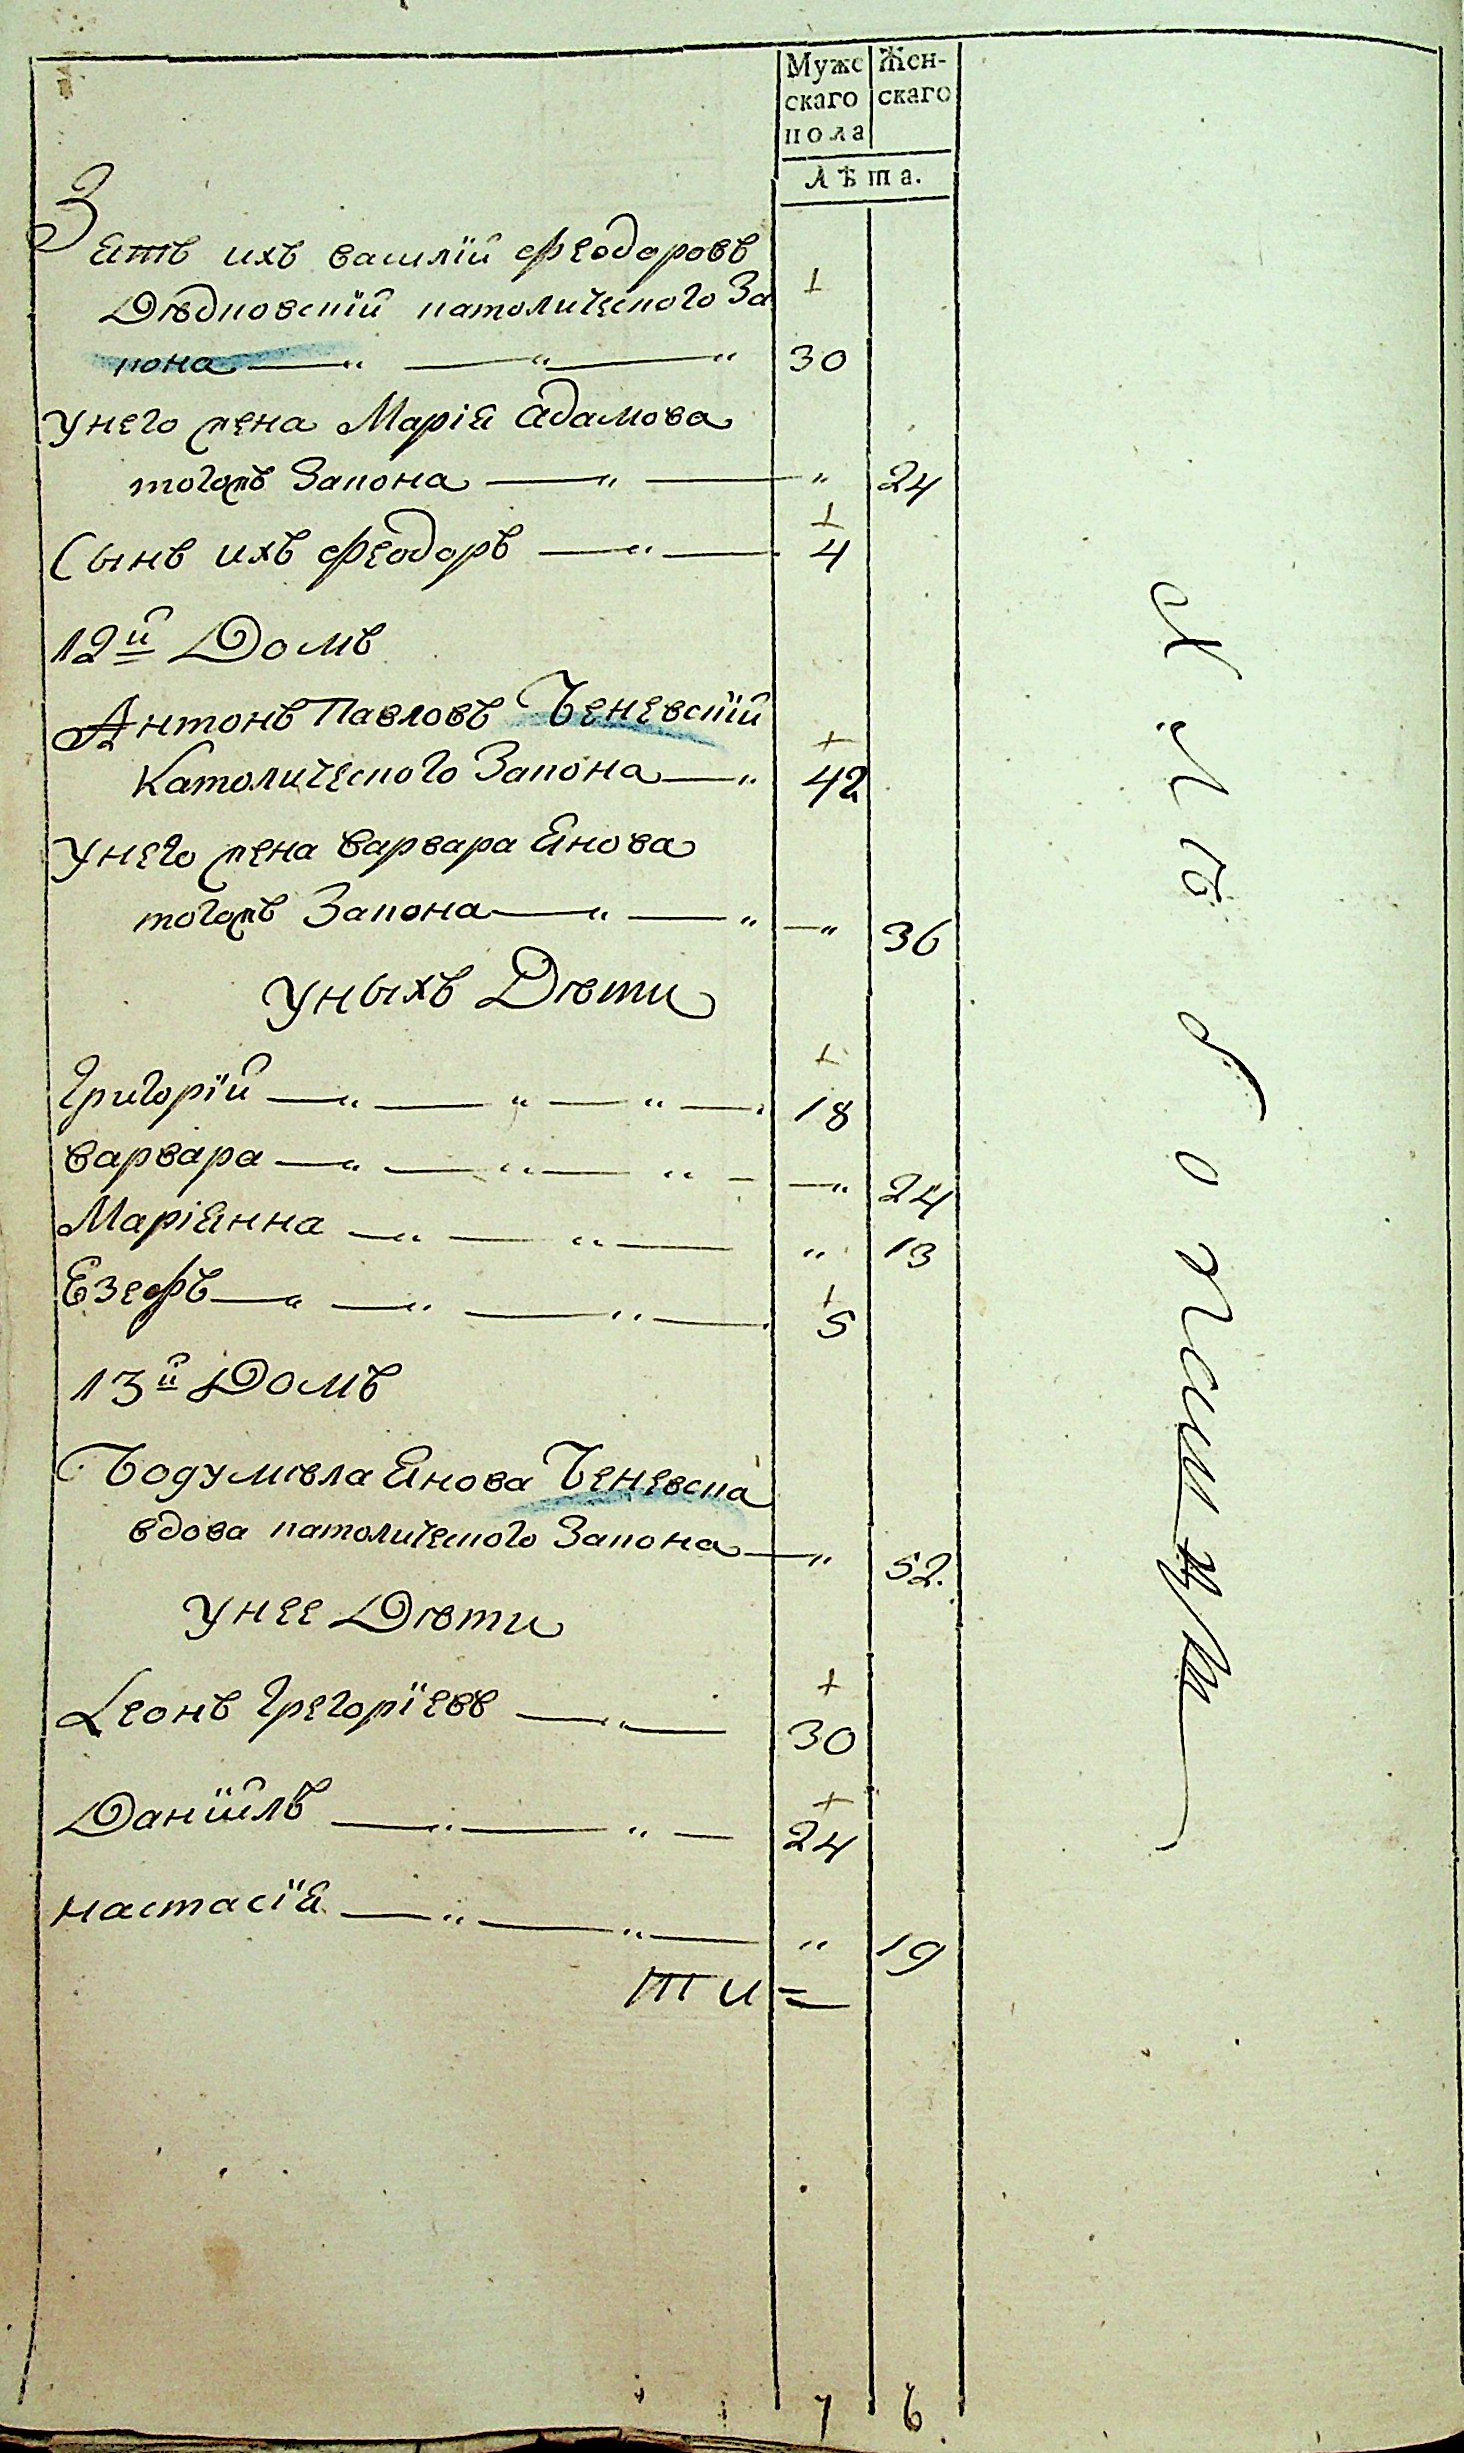 Муже Жен-
скаго скаго
пола
Лѣта.
Зять ихъ василїй Феодоровъ
Дѣдковскїй католического За
кона 30
унего жена Марія адамова
тогожъ Закона 24
Сынъ ихъ Феодоръ 4
12й Домъ
Антонъ Павловъ Беневскїй
Католического Закона 42
унего жена варвара Янова
тогожъ Закона 36
уныхъ Дѣти
Григорїй 18
варвара 24
Маріянна 13
Езефъ 5
13й Домъ
Богумѣла Янова Беневска
вдова католического Закона 52.
унее Дѣти
Леонъ Грегорїевъ 30
Данїилъ 24
настасїя 19
ти
7 6